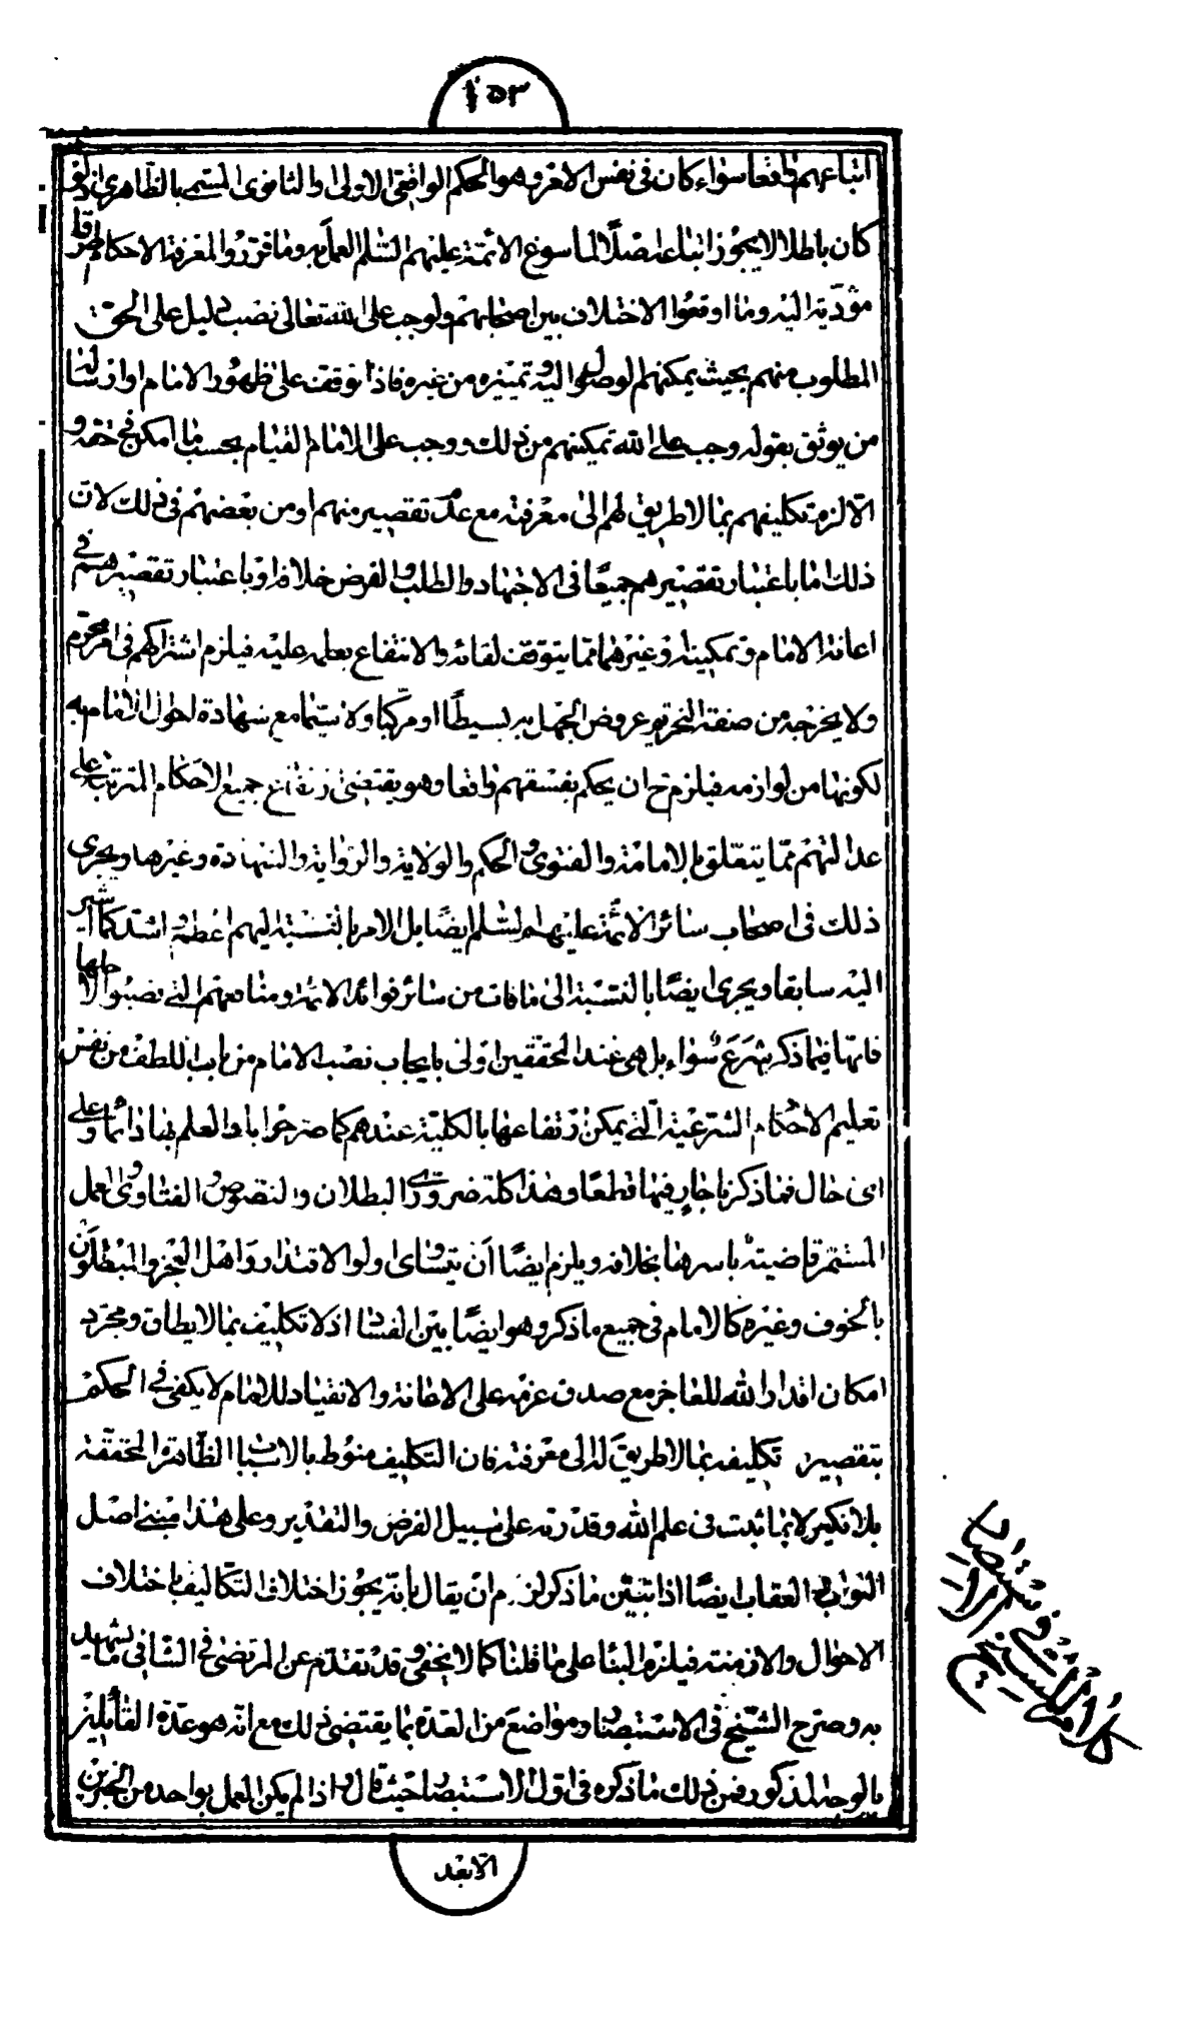 ١٥٣
اتباعهم واقعا سواء كان في نفس الامر وهو الحكم الواقعي الاولى او الثانوى المسمى بالظاهري اذ لو
كان باطلا لا يجوز اتباعه اصلا لما سوغ الائمة عليهم السلم العمل به وما قرروا لمعرفة الاحكام طرقا
مؤدية اليه وما اوقعوا الاختلاف بين اصحابهم ولوجب على الله تعالى نصب دليل على الحق
المطلوب منهم بحيث يمكنهم الوصول اليه وتميزه من غيره فاذا توقف على ظهور الامام او ارسال
من يوثق بقوله وجب على الله تمكينهم من ذلك ووجب على الامام القيام بحسب ما امكن في حقه و
الا لزم تكليفهم بما لا طريق لهم الى معرفته مع عدم تقصير منهم او من بعضهم في ذلك لان
ذلك اما باعتبار تقصيرهم جميعا في الاجتهاد والطلب والفرض خلافه او باعتبار تقصيرهم في
اعانة الامام وتمكينه وغيرهما مما يتوقف لقائه والانتفاع بعلمه عليه فيلزم اشتراكهم في امر محرم
ولا يخرجه من صفة التحريم عروض الجهل به بسيطا او مركبا ولا سيما مع شهادة احوال الامام به
لكونها من لوازمه فيلزم ح ان يحكم بفسقهم واقعا وهو يقتضى ارتفاع جميع الاحكام المترتبة على
عدالتهم مما يتعلق بالامامة والفتوى والحكم والولاية والرواية والشهادة وغيرها ويجرى
ذلك في اصحاب سائر الائمة عليهم السلم ايضا بل الامر بالنسبة اليهم اعظم واشد كما اشير
اليه سابقا ويجرى ايضا بالنسبة الى ما فات من سائر فوائد الائمة ومنافعهم التي نصبوا لاجلها
فانها فيما ذكر شرع سواء بل هي عند المحققين اولى بايجاب نصب الامام من باب اللطف من نفس
تعليم الاحكام الشرعية التي يمكن ارتفاعها بالكلية عندهم كما صرحوا باد العلم بها دائما وعلى
اى حال فما ذكرنا جار فيها قطعا وهذا كله ضرورى البطلان والنصوص والفتاوى والعمل
المستمر قاضية باسرها بخلافه ويلزم ايضا ان يتساوى اولو الاقتدار واهل العجز والمبطلون
بالخوف وغيره كالامام في جميع ما ذكر وهو ايضا بين الفساد اذ لا تكليف بما لا يطاق ومجرد
امكان اقدار الله للعاجز مع صدق عزمه على الاعانة والانقياد للامام لا يكفى في الحكم
بتقصيره تكليفه بما لا طريق له الى معرفته فان التكليف منوط بالاسباب الظاهرة المحققة
بلا نكير لا بما ثبت في علم الله وقدرته على سبيل الفرض والتقدير وعلى هذا مبنى اصل
الثواب والعقاب ايضا اذا تبين ما ذكر لزم ان يقال بانه يجوز اختلاف التكاليف باختلاف
الاحوال والازمنة فيلزم البناء على ما قلنا كما لا يخفى وقد تقدم عن المرتضى في الشافي ما يشهد
به وصرح الشيخ في الاستبصار ومواضع من العدة بما يقتضى ذلك مع انه هو عمدة القائلين
بالوجه المذكور فمن ذلك ما ذكره في اول الاستبصار حيث قال واذا لم يكن العمل بواحد من الخبرين
الا بعد
كلام الشيخ في الاستبصار